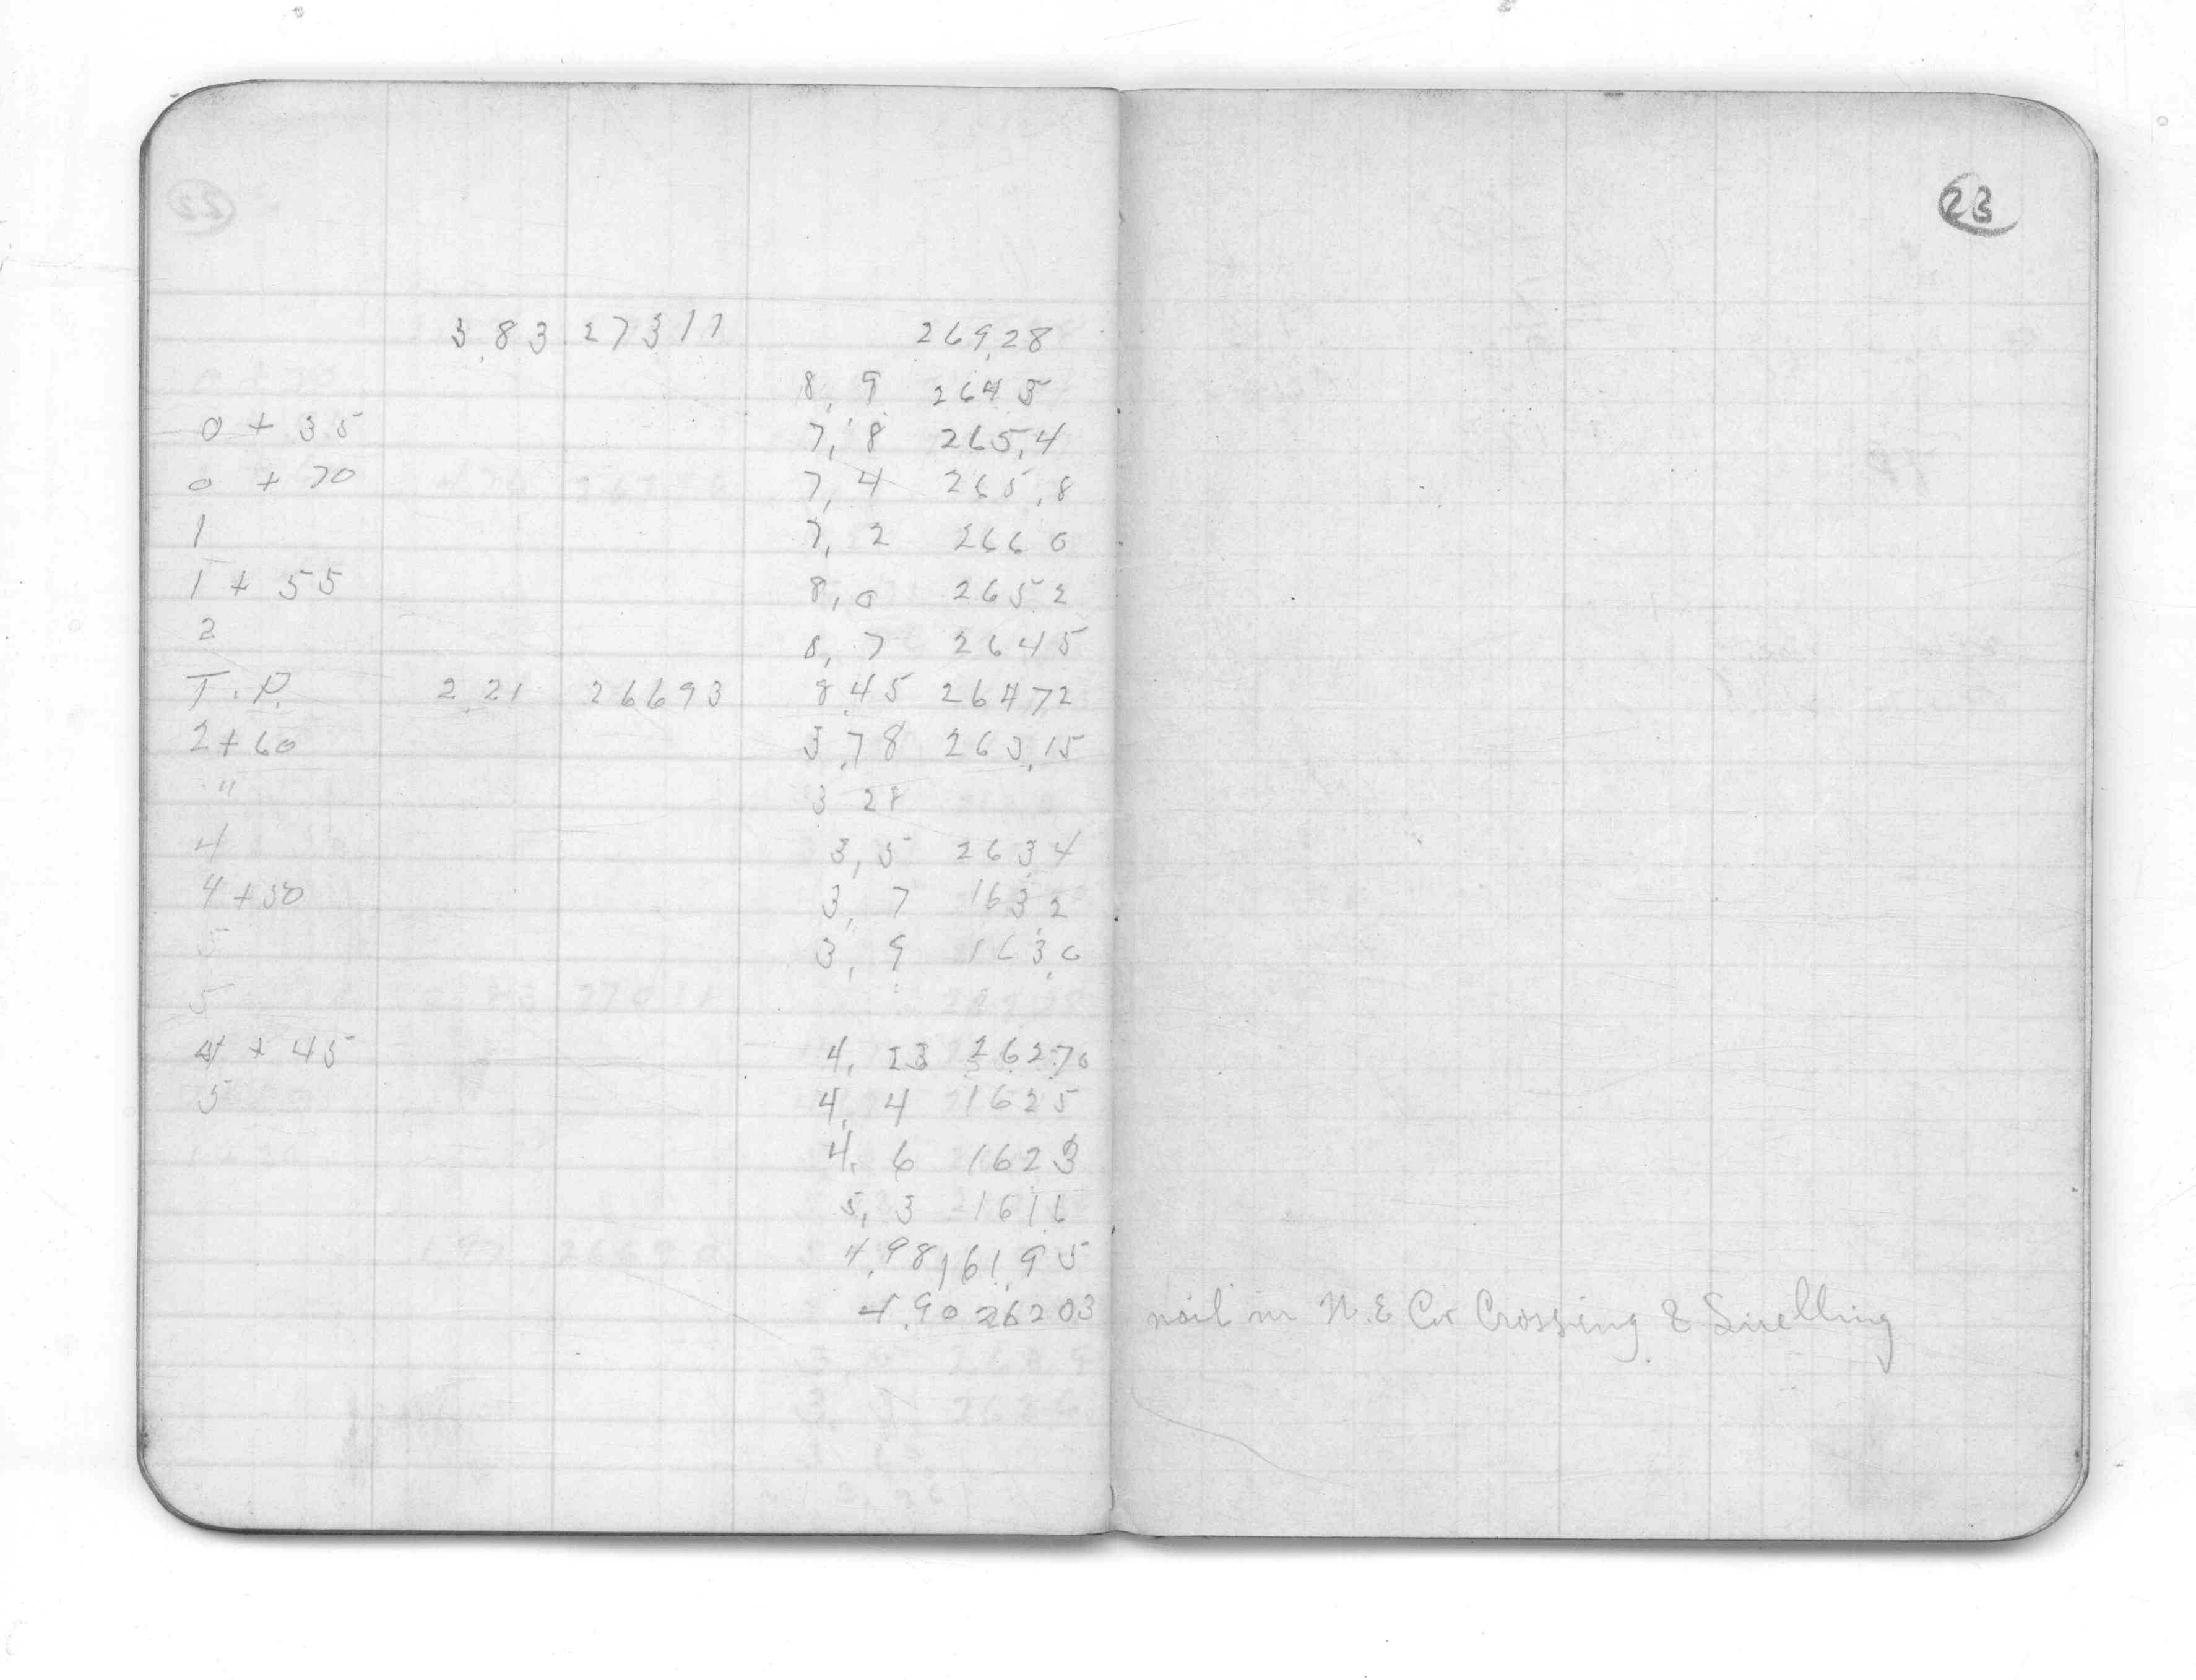 23
3.83 27311 269.28
8.9 2643
0 + 35 7.8 265.4
0 + 70 7.4 265.8
1 7.2 2660
1 + 55 8.0 2652
2 8.7 2645
T.P. 2.21 26693 8.45 26472
2+60 3.78 263.15
" 3 28
4 3.5 263.4
4+50 3.7 163.2
5 3.9 163.0
5
4 + 45 4.23 262.70
5 4.4 1625
4.6 1623
5.3 161.6
4.98 161.95
4.90 26203 nail in N.E Cor Crossing & Snelling